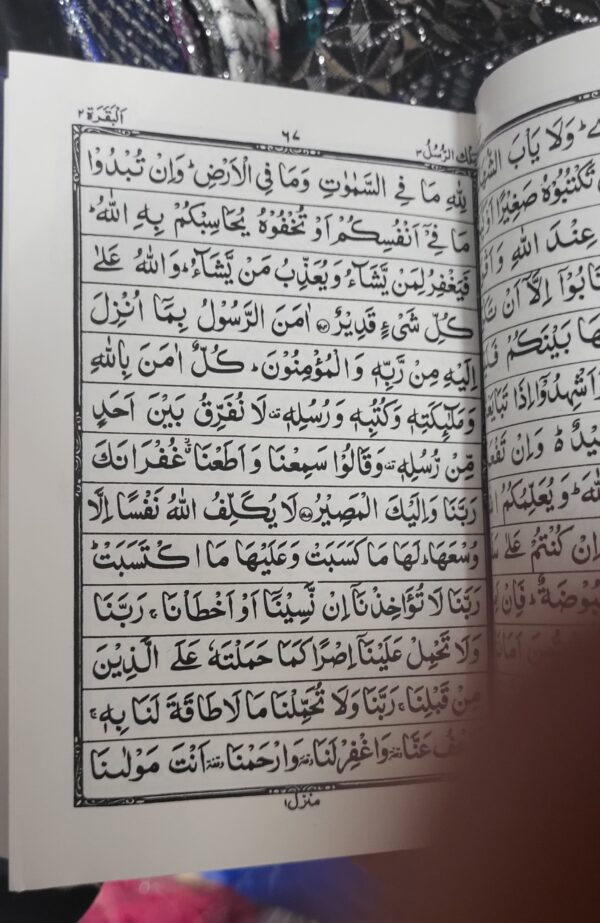 اَلْبَقَرَة ٢
٦٧
تِلْكَ الرُّسُلُ ٣
لِلّٰهِ مَا فِي السَّمٰوٰتِ وَمَا فِي الْاَرْضِ ؕ وَاِنْ تُبْدُوْا
مَا فِيْۤ اَنْفُسِكُمْ اَوْ تُخْفُوْهُ يُحَاسِبْكُمْ بِهِ اللّٰهُ ؕ
فَيَغْفِرُ لِمَنْ يَّشَآءُ وَيُعَذِّبُ مَنْ يَّشَآءُ ؕ وَاللّٰهُ عَلٰى
كُلِّ شَيْءٍ قَدِيْرٌ ۝ اٰمَنَ الرَّسُوْلُ بِمَاۤ اُنْزِلَ
اِلَيْهِ مِنْ رَّبِّهٖ وَالْمُؤْمِنُوْنَ ؕ كُلٌّ اٰمَنَ بِاللّٰهِ
وَمَلٰٓئِكَتِهٖ وَكُتُبِهٖ وَرُسُلِهٖ ۫ لَا نُفَرِّقُ بَيْنَ اَحَدٍ
مِّنْ رُّسُلِهٖ ۫ وَقَالُوْا سَمِعْنَا وَاَطَعْنَا ۫ غُفْرَانَكَ
رَبَّنَا وَاِلَيْكَ الْمَصِيْرُ ۝ لَا يُكَلِّفُ اللّٰهُ نَفْسًا اِلَّا
وُسْعَهَا ؕ لَهَا مَا كَسَبَتْ وَعَلَيْهَا مَا اكْتَسَبَتْ ؕ
رَبَّنَا لَا تُؤَاخِذْنَاۤ اِنْ نَّسِيْنَاۤ اَوْ اَخْطَاْنَا ۚ رَبَّنَا
وَلَا تَحْمِلْ عَلَيْنَاۤ اِصْرًا كَمَا حَمَلْتَهٗ عَلَى الَّذِيْنَ
مِنْ قَبْلِنَا ۚ رَبَّنَا وَلَا تُحَمِّلْنَا مَا لَا طَاقَةَ لَنَا بِهٖ ۚ
عَنَّا ۥ وَاغْفِرْ لَنَا ۥ وَارْحَمْنَا ۥ اَنْتَ مَوْلٰىنَا
منزل ١
وَلَا يَاْبَ
تَكْتُبُوْهُ صَغِيْرًا
عِنْدَ اللّٰهِ
اِلَّاۤ اَنْ
بَيْنَكُمْ
اَشْهِدُوْۤا اِذَا
وَاِنْ
وَيُعَلِّمُكُمُ
كُنْتُمْ عَلٰى
فَاِنْ